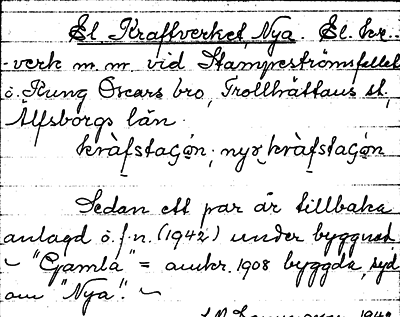 El Kraftverket, Nya. El. kr.-
-verk m.m. vid Stampeströmsfallet
ö. Kung Oscars bro, Trollhättans st.,
Älfsborgs län.
kràfstagọ́n; nyɤ kràfstagọ́n
Sedan ett par år tillbaka
anlagd ö. f. n. (1942) under byggnad
~ "Gamla" = omkr. 1908 byggda, syd
om "Nya". ~
1942